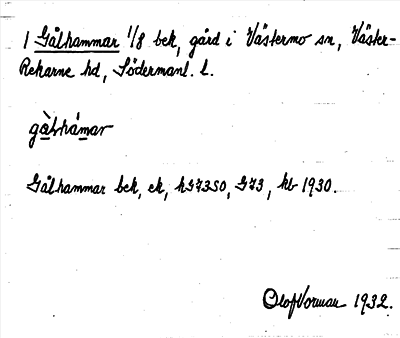 1 Gålhammar 1/8 bek, gård i Västermo sn, Väster-
Rekarne hd, Södermanl. l.
gå̀lhámar
Gålhammar bek, ek, hG73SO, G73, hb 1930.
Olof Vorman 1932.